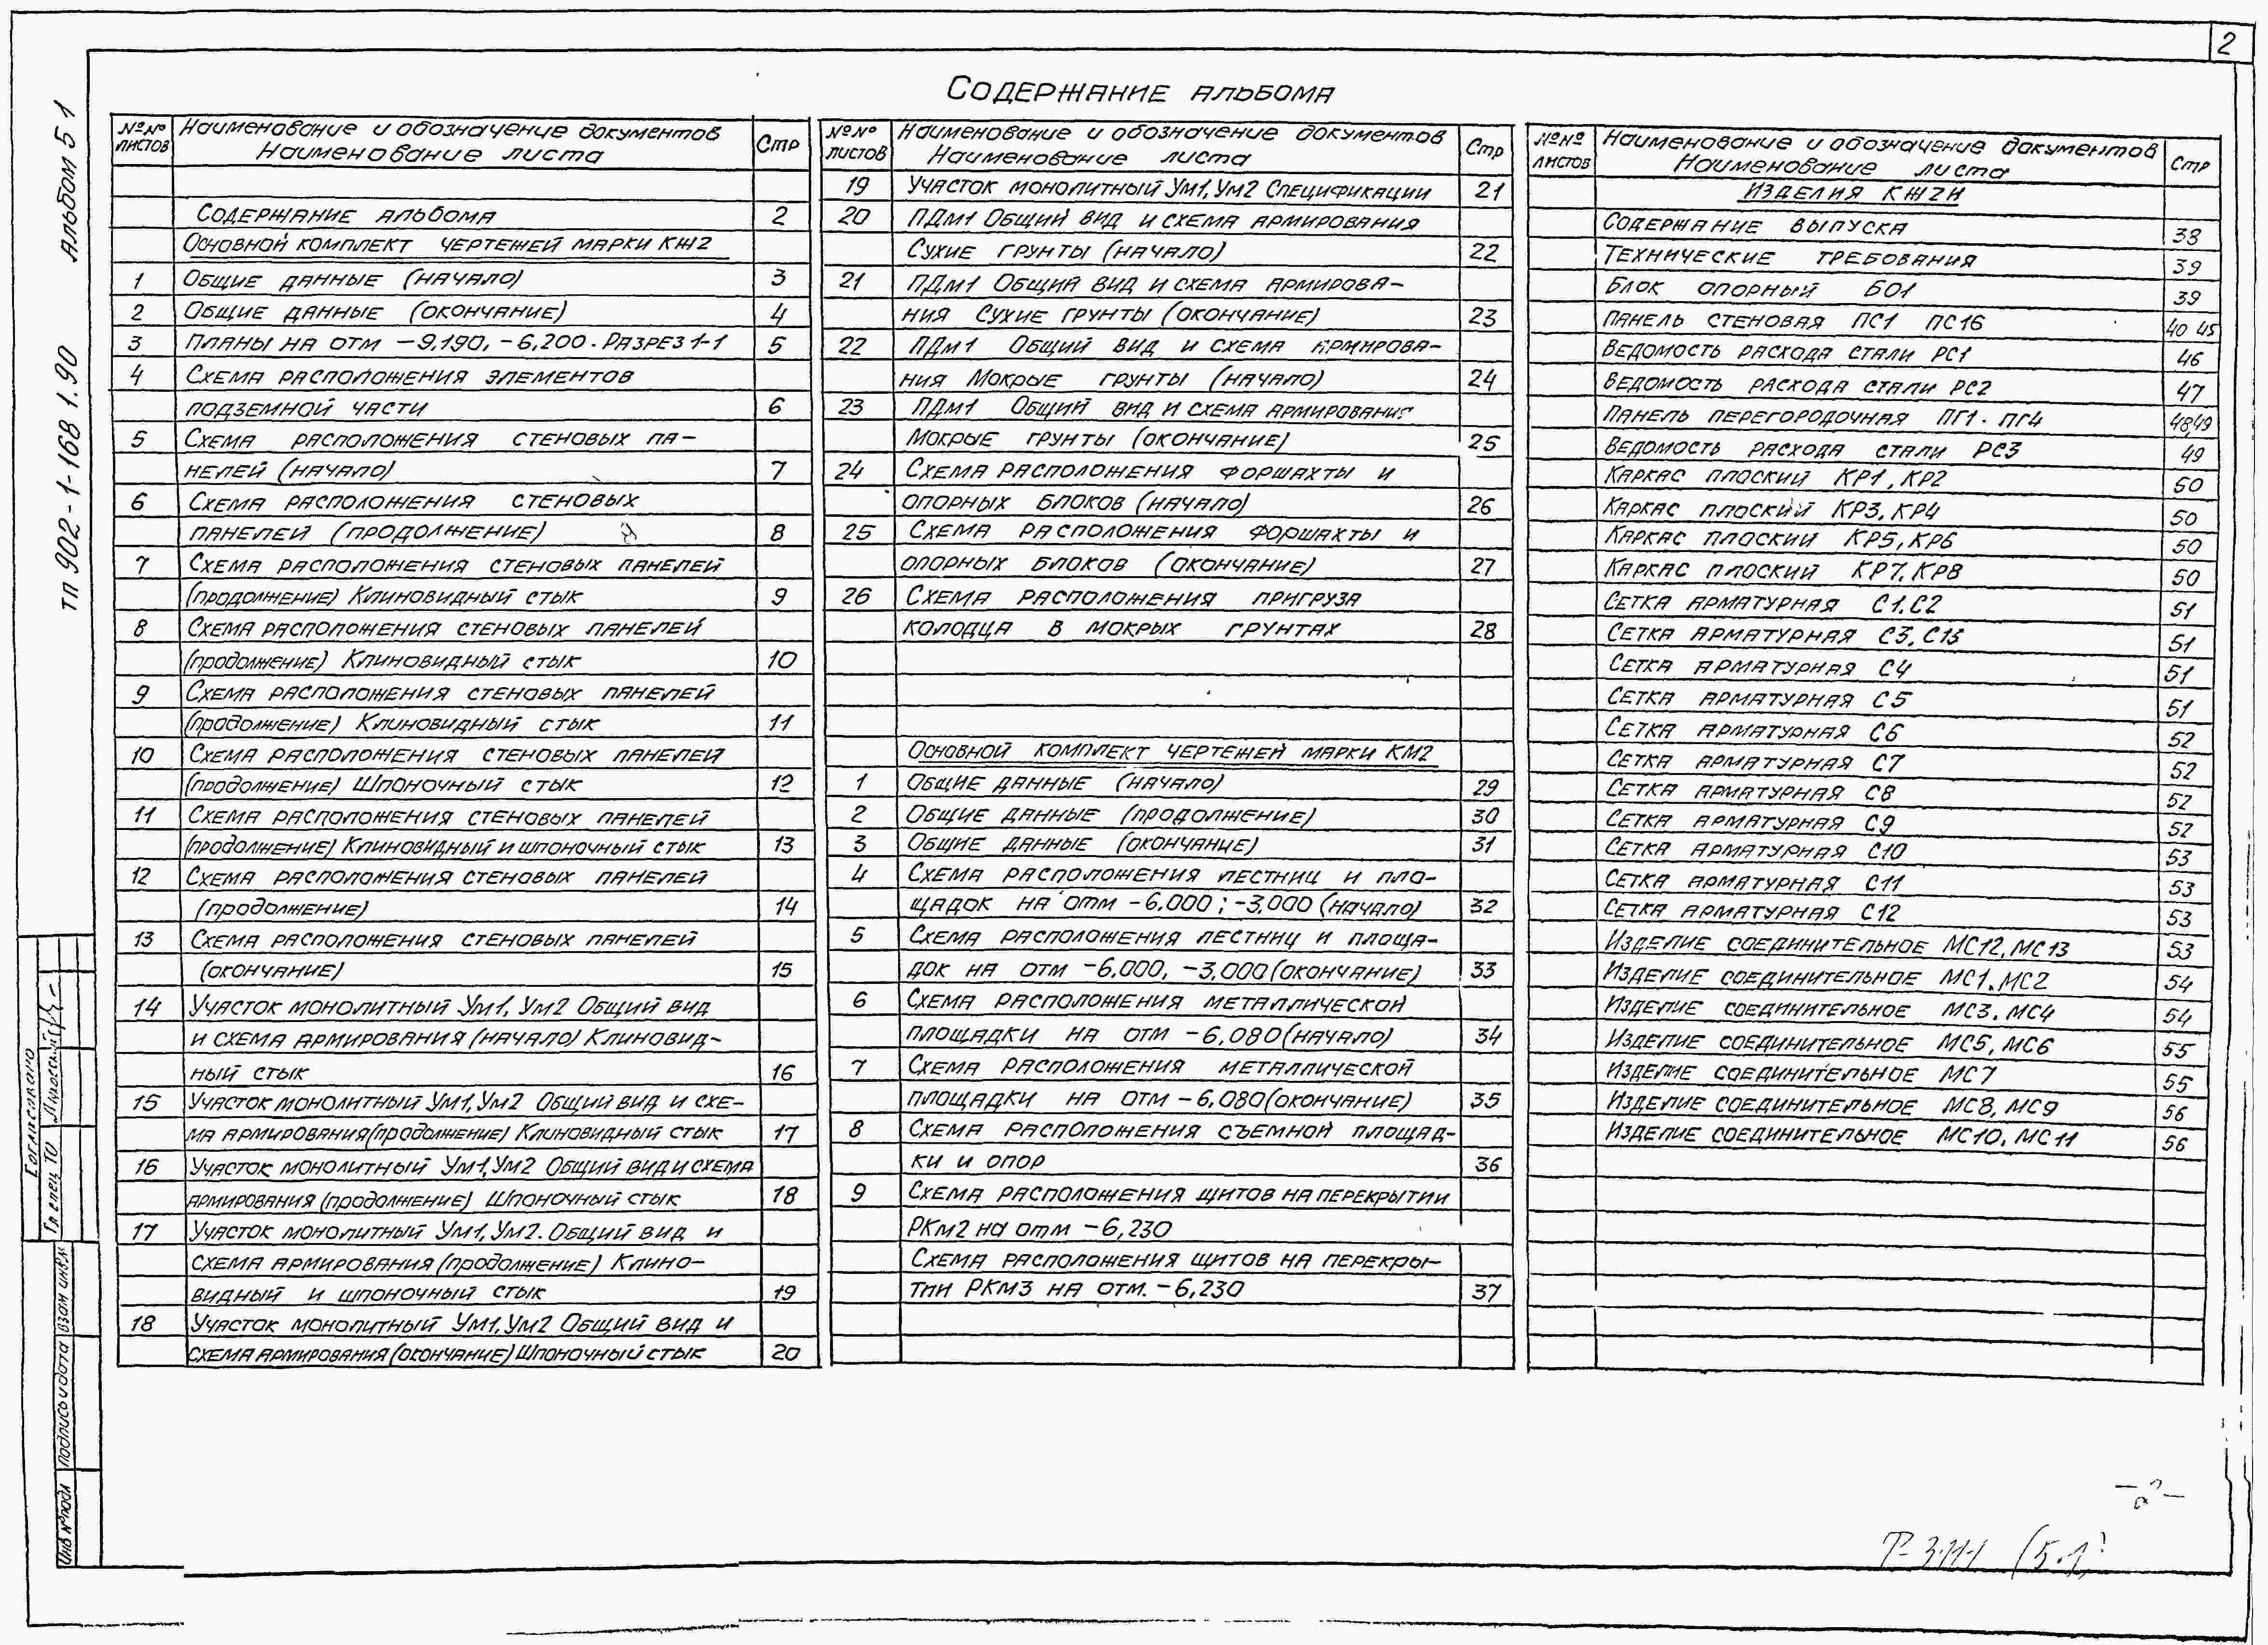 2
Содержание альбома
ТП 902-1-168 1.90 Альбом 5 1
№№ листов
Наименование и обозначение документов
Наименование листа
Стр
Содержание альбома 2
Основной комплект чертежей марки КЖ2
1 Общие данные (начало) 3
2 Общие данные (окончание) 4
3 Планы на отм −9,190, −6,200. Разрез 1-1 5
4 Схема расположения элементов
подземной части 6
5 Схема расположения стеновых па-
нелей (начало) 7
6 Схема расположения стеновых
панелей (продолжение) 8
7 Схема расположения стеновых панелей
(продолжение) Клиновидный стык 9
8 Схема расположения стеновых панелей
(продолжение) Клиновидный стык 10
9 Схема расположения стеновых панелей
(продолжение) Клиновидный стык 11
10 Схема расположения стеновых панелей
(продолжение) Шпоночный стык 12
11 Схема расположения стеновых панелей
(продолжение) Клиновидный и шпоночный стык 13
12 Схема расположения стеновых панелей
(продолжение) 14
13 Схема расположения стеновых панелей
(окончание) 15
14 Участок монолитный Ум1, Ум2 Общий вид
и схема армирования (начало) Клиновид-
ный стык 16
15 Участок монолитный Ум1, Ум2 Общий вид и схе-
ма армирования (продолжение) Клиновидный стык 17
16 Участок монолитный Ум1, Ум2 Общий вид и схема
армирования (продолжение) Шпоночный стык 18
17 Участок монолитный Ум1, Ум2. Общий вид и
схема армирования (продолжение) Клино-
видный и шпоночный стык 19
18 Участок монолитный Ум1, Ум2 Общий вид и
схема армирования (окончание) Шпоночный стык 20
№№ листов
Наименование и обозначение документов
Наименование листа
Стр
19 Участок монолитный Ум1, Ум2 Спецификации 21
20 ПДм1 Общий вид и схема армирования
Сухие грунты (начало) 22
21 ПДм1 Общий вид и схема армирова-
ния Сухие грунты (окончание) 23
22 ПДм1 Общий вид и схема армирова-
ния Мокрые грунты (начало) 24
23 ПДм1 Общий вид и схема армирования
Мокрые грунты (окончание) 25
24 Схема расположения форшахты и
опорных блоков (начало) 26
25 Схема расположения форшахты и
опорных блоков (окончание) 27
26 Схема расположения пригруза
колодца в мокрых грунтах 28
Основной комплект чертежей марки КМ2
1 Общие данные (начало) 29
2 Общие данные (продолжение) 30
3 Общие данные (окончание) 31
4 Схема расположения лестниц и пло-
щадок на отм −6,000; −3,000 (начало) 32
5 Схема расположения лестниц и площа-
док на отм −6,000, −3,000 (окончание) 33
6 Схема расположения металлической
площадки на отм −6,080 (начало) 34
7 Схема расположения металлической
площадки на отм −6,080 (окончание) 35
8 Схема расположения съемной площад-
ки и опор 36
9 Схема расположения щитов на перекрытии
РКм2 на отм −6,230
Схема расположения щитов на перекры-
тии РКм3 на отм. −6,230 37
№№ листов
Наименование и обозначение документов
Наименование листа
Стр
Изделия КЖ2И
Содержание выпуска 38
Технические требования 39
Блок опорный БО1 39
Панель стеновая ПС1 ПС16 40 45
Ведомость расхода стали РС1 46
Ведомость расхода стали РС2 47
Панель перегородочная ПГ1. ПГ4 48,49
Ведомость расхода стали РС3 49
Каркас плоский КР1, КР2 50
Каркас плоский КР3, КР4 50
Каркас плоский КР5, КР6 50
Каркас плоский КР7, КР8 50
Сетка арматурная С1, С2 51
Сетка арматурная С3, С13 51
Сетка арматурная С4 51
Сетка арматурная С5 51
Сетка арматурная С6 52
Сетка арматурная С7 52
Сетка арматурная С8 52
Сетка арматурная С9 52
Сетка арматурная С10 53
Сетка арматурная С11 53
Сетка арматурная С12 53
Изделие соединительное МС12, МС13 53
Изделие соединительное МС1, МС2 54
Изделие соединительное МС3, МС4 54
Изделие соединительное МС5, МС6 55
Изделие соединительное МС7 55
Изделие соединительное МС8, МС9 56
Изделие соединительное МС10, МС11 56
Согласовано
Гл спец ТО
Инв № подл Подпись и дата Взам инв №
(5.1)